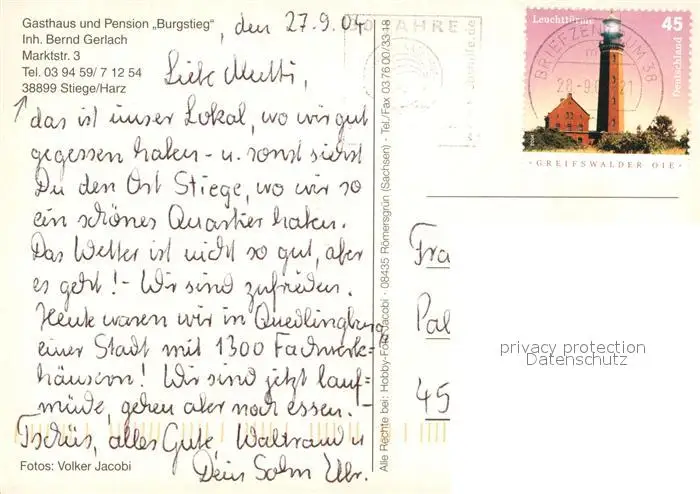 Gasthaus und Pension „Burgstieg"
Inh. Bernd Gerlach
Marktstr. 3
Tel. 03 94 59/ 7 12 54
38899 Stiege/Harz
, den 27.9.04
Liebe Mutti,
das ist unser Lokal, wo wir gut
gegessen haben - u. sonst siehst
Du den Ort Stiege, wo wir so
ein schönes Quartier haben.
Das Wetter ist nicht so gut, aber
es geht! - Wir sind zufrieden.
Heute waren wir in Quedlinburg,
einer Stadt mit 1300 Fachwerk=
häusern! Wir sind jetzt lauf=
müde, gehen aber noch essen. -
Tschüs, alles Gute, Waltraud u
Dein Sohn
Fotos: Volker Jacobi
Alle Rechte bei: Hobby-Foto Jacobi · 08435 Römersgrün (Sachsen) · Tel./Fax 03 76 00/33 18
JAHRE
Leuchttürme
45
Deutschland
BRIEFZENTRUM 38
28.-9.
21
·GREIFSWALDER OIE·
Fra
Pal
45
privacy protection
Datenschutz